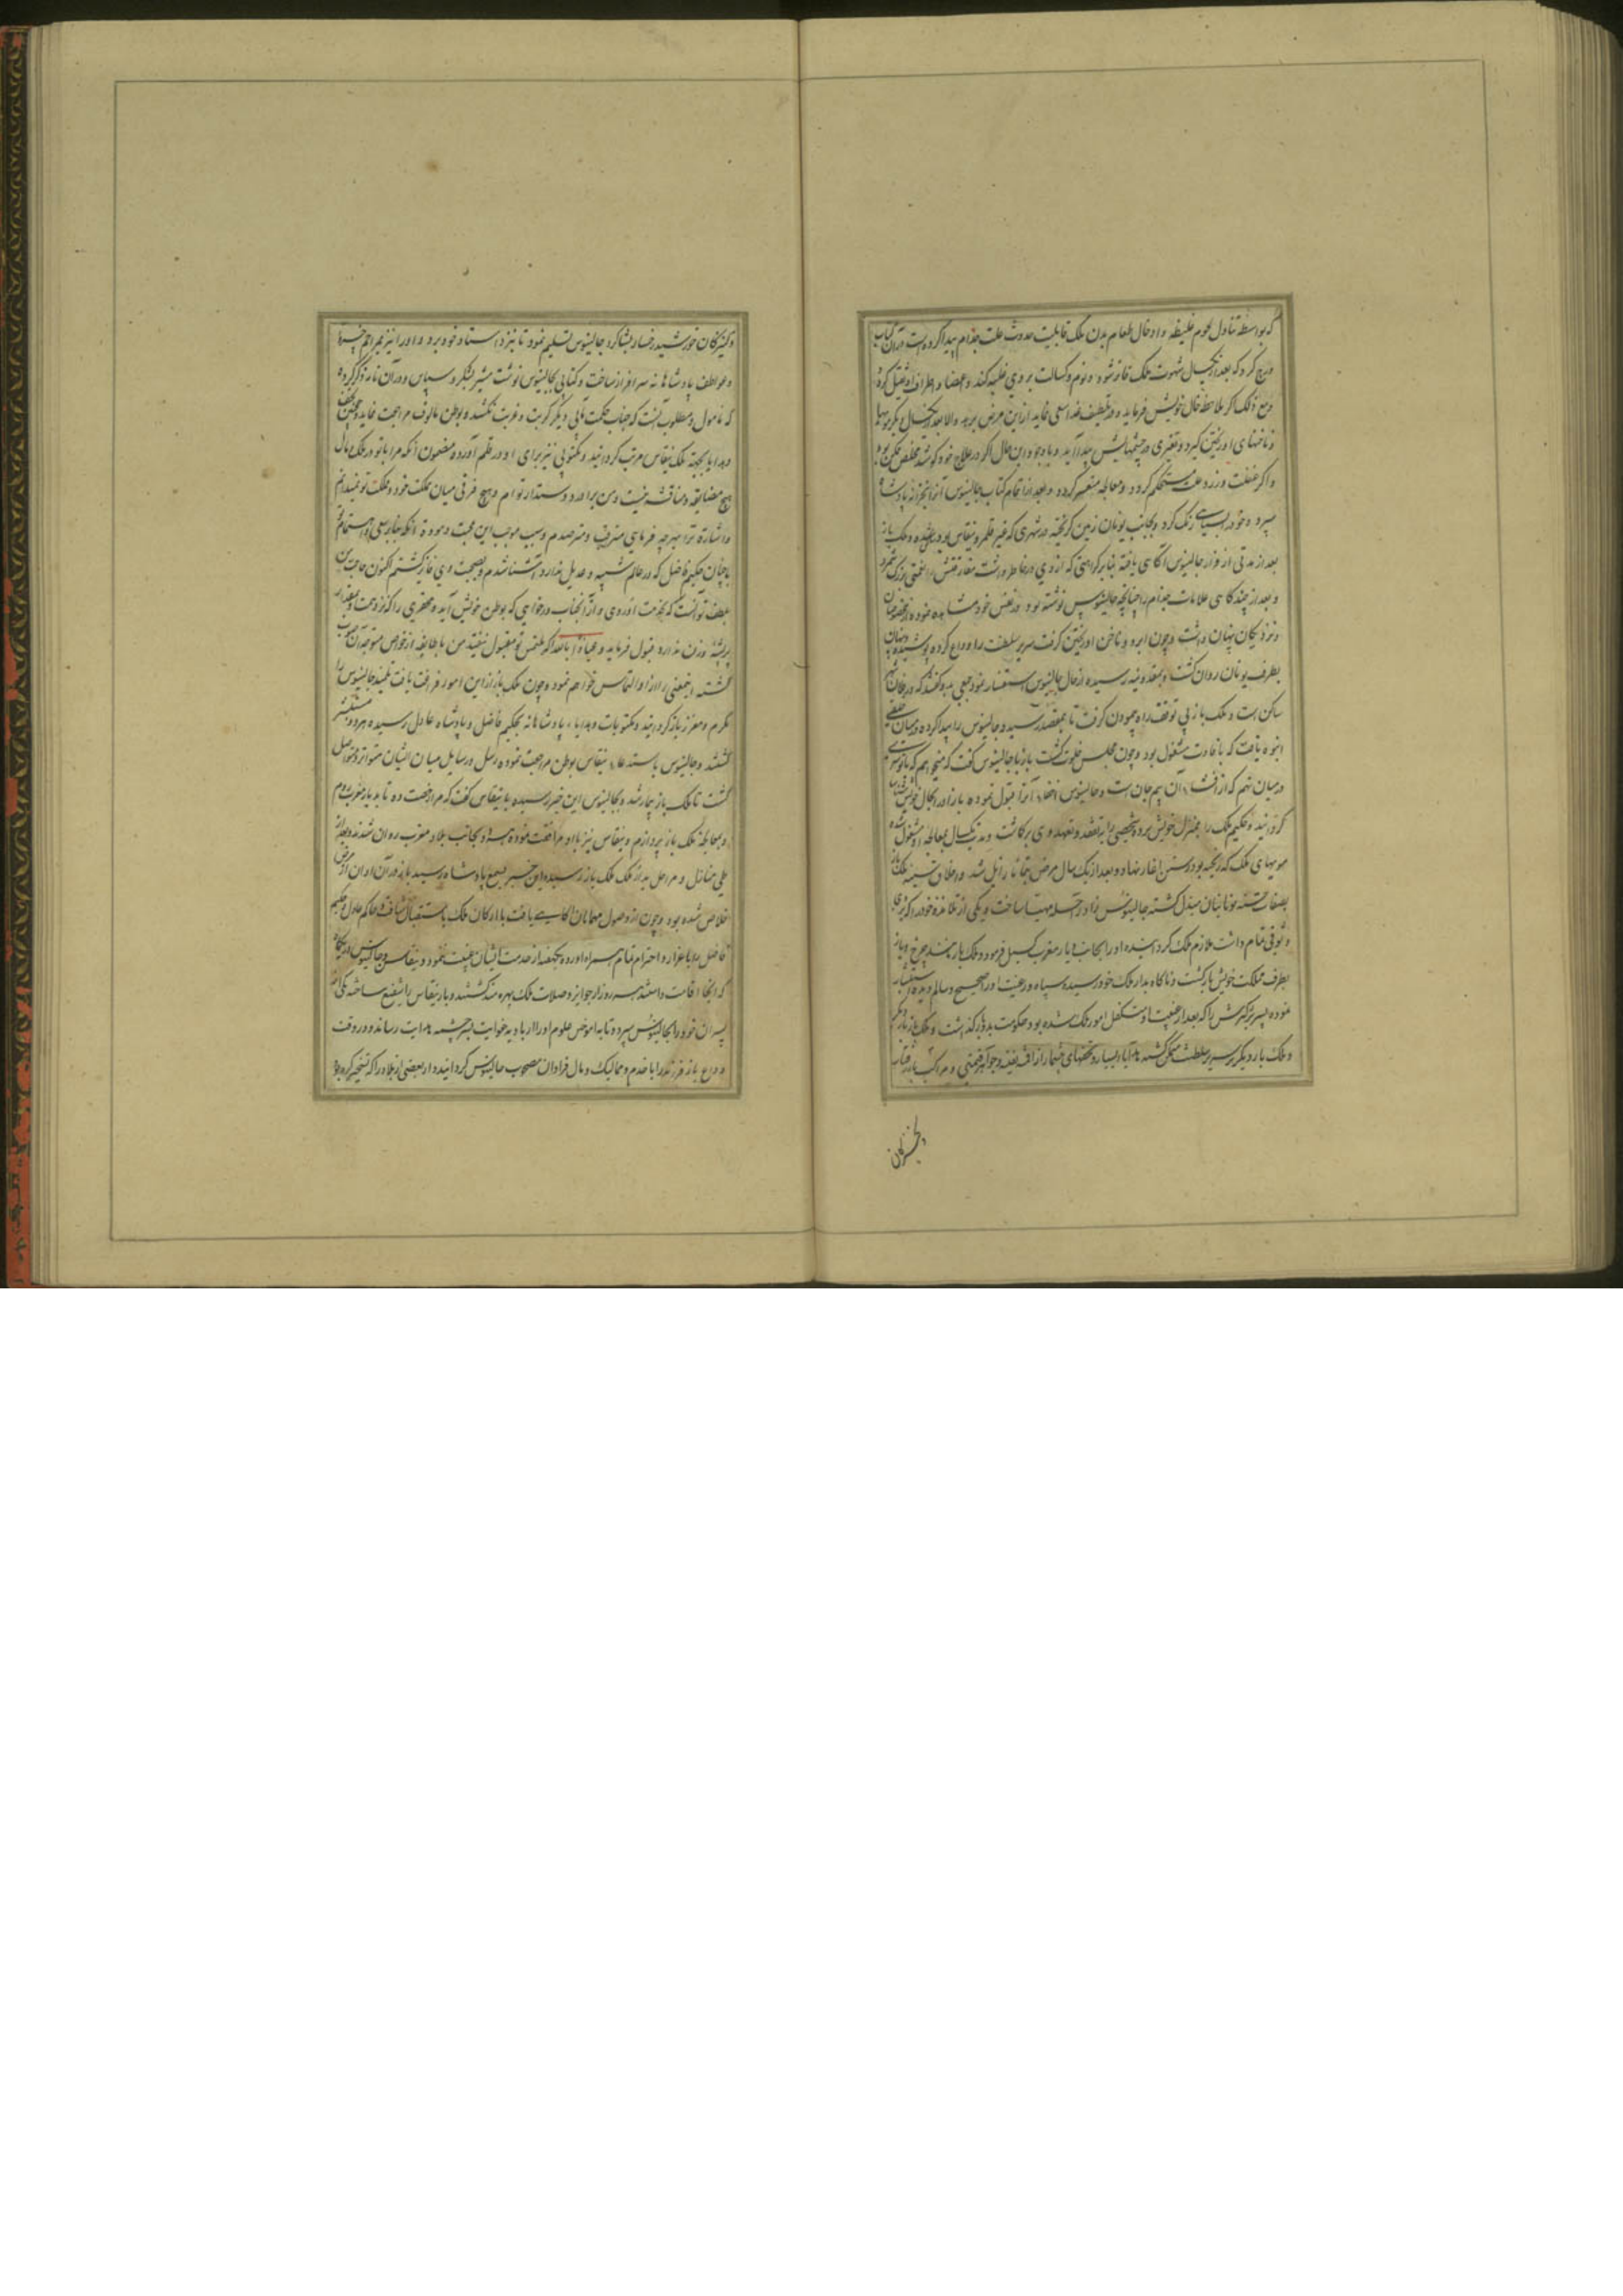 که بواسطه تناول لحوم غلیظه و ادخال طعام بدن ملک قابلیت حدوث علت جذام پیدا کرده است در آن کتاب
درج کرد که بعد از یکسال شهوت ملک فاتر شود و نوم و کسالت بر وی غلبه کند و اعضا و اطراف او ثقیل کردد
و مع ذلک اگر ملاحظه حال خویش فرماید و در تلطیف غذا سعی نماید از این مرض برهد والا بعد از یکسال دیگر مویها
و ناخنهای او ریختن گیرد و تغیری در چشمهایش پیدا آید و با وجود این حال اگر در علاج خود کوشد تخلص ممکن بود
و اگر غفلت ورزد علت مستحکم کردد و معالجه متعسر کردد و بعد از اتمام کتاب جالینوس آنرا بخزانه پادشاه
سپرد و خود را بسیاهی رنگ کرد و بجانب یونان زمین گریخته در شهری که غیر قلمرو نیقاس بود و ملک باز
بعد از مدتی از فرار جالینوس آگاهی یافته بنابر کراهتی که از وی در خاطر داشت مفارقتش را غنیمتی بزرگ شمرد
و بعد از چند گاهی علامات جذام را چنانچه جالینوس نوشته بود در نفس خود مشاهده نموده از مخصوصان
و نزدیکان پنهان داشت و چون ابرو و ناخن او ریختن گرفت سریر سلطنت را وداع کرده پوشیده و پنهان
بطرف یونان روان گشت و بمقدونیه رسیده از حال جالینوس استفسار نمود جمعی بدو گفتند که در فلان شهر
ساکن است و ملک باز بی توقف راه پیمودن گرفت تا بمقصد رسید و جالینوس را پیدا کرده در میان خلقی
انبوه یافت که بافادت مشغول بود و چون مجلس خلوت گشت باز با جالینوس گفت که میخواهم که با تو سری
در میان نهم که از افشاء آن بیم جان است و جالینوس اخفاء آنرا قبول نموده باز او را بحال خویش
گردانید و حکیم ملک را بمنزل خویش برده و شخصی را به تفقد و تعهد وی برگماشت و مدت یکسال بمعالجه او مشغول شده
مویهای ملک که ریخته بود رستن آغاز نهاد و بعد از یک سال مرض بتمامه زایل شد و اخلاق سیئه ملک باز
بصفات حسنه یونانیان مبدل گشته جالینوس زاد راحله مهیا ساخت و یکی از تلامذه خود را که بر وی
وثوقی تمام داشت ملازم ملک گردانیده او را بجانب دیار مغرب گسیل فرمود و ملک باز
بطرف مملکت خویش باز گشت و ناگاه بدار ملک خود رسیده سپاه و رعیت او را صحیح و سالم دیده استبشار
نموده پسر بزرگترش را که بعد از غیبت او متکفل امور ملک شده بود حکومت بدو باز گذاشت
و ملک بار دیگر بر سریر سلطنت متمکن گشته هدایاء بسیار و تحفهای بیشمار از اقمشه نفیسه و جواهر ثمین و مراکب باد رفتار
و کنیزکان
و کنیزکان خورشید رخسار بشاگرد جالینوس تسلیم نمود تا بنزد استاد خود برد و او را نیز بمراحم خسروانه
و عواطف پادشاهانه سرافراز ساخت و کتابی بجالینوس نوشت مشیر بشکر و سپاس و در آن نامه ذکر کرده
که مامول و مطلوب آنست که جناب حکمت مآبی دیگر کربت و غربت نکشد و بوطن مالوف مراجعت نماید و همچنین تحف
و هدایا بجهت ملک نیقاس مرتب گردانید و مکتوبی نیز برای او در قلم آورده مضمون آنکه مرا با تو در ملک و مال
هیچ مضایقه و مناقشه نیست و من برادر و دوستدار تو ام و هیچ فرقی میان مملکت خود و ملکت تو نمیدانم
و اشاره ترا بهر چه فرمایی مترقب و مترصدم و سبب موجب این محبت و مودت آنکه بنابر سعی و اهتمام تو
با چنان حکیم فاضل که در عالم شبیه و عدیل ندارد آشنا شدم و بصحبت وی فائز گشتم اکنون حاجت من
بلطف تو آنست که بخدمت او روی و از آنجناب درخواهی که بوطن خویش آید و محقری را که نزد همت او مقدار
پر پشه وزن ندارد قبول فرماید و عیاذا بالله اگر ملتمس تو مقبول نیفتد من با طایفه از خواص متوجه آن صوب
گشته اینمعنی را از او التماس خواهم نمود و چون ملک باز از این امور فراغت یافت تلمیذ جالینوس را
مکرم و معزز باز گردانید و مکتوبات و هدایاء پادشاهانه بحکیم فاضل و پادشاه عادل رسیده هر دو مستبشر
گشتند و جالینوس باستدعاء نیقاس بوطن مراجعت نموده رسل و رسایل میان ایشان متواتر و متواصل
گشت تا ملک باز بیمار شد و بجالینوس این خبر رسیده با نیقاس گفت که مرا رخصت ده تا بدیار مغرب روم
و بمعالجه ملک باز پردازم و نیقاس نیز با او مرافقت نموده هر دو بجانب بلاد مغرب روان شدند و بعد از
طی منازل و مراحل بدار ملک ملک باز رسیده این خبر بسمع پادشاه رسید باز در آن اوان از مرض
خلاص شده بود و چون از وصول مهمانان آگاهی یافت با ارکان ملک باستقبال شتافت و حاکم عادل و حکیم
فاضل را باعزاز و احترام تمام همراه آورده یکلحظه از خدمت ایشان غیبت ننمود و نیقاس و جالینوس در یکماه
که آنجا اقامت داشتند هر روز از جوایز و صلات ملک بهره مند گشتند و باز نیقاس را شفیع ساخته یکی از
پسران خود را بجالینوس سپرد تا به آموختن علوم او را از بادیه غوایت بسرچشمه هدایت رساند و در وقت
وداع باز فرزند را با خدم و ممالیک و مال فراوان مصحوب جالینوس گردانیده از بعضی از بلاد را که تسخیر کرده بود